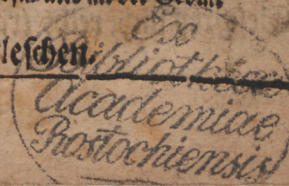 und
leschen.
Ex
Bibliotheca
Academiae
Rostochiensis